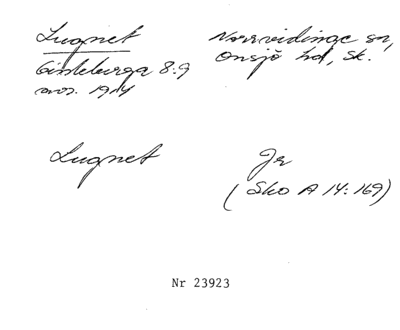 Lugnet Norrvidinge sn,
Ginkelunga 8:9 Onsjö hd, Sk.
avs. 1914
Lugnet Jr
(Sko A 14: 169)
Nr 23923